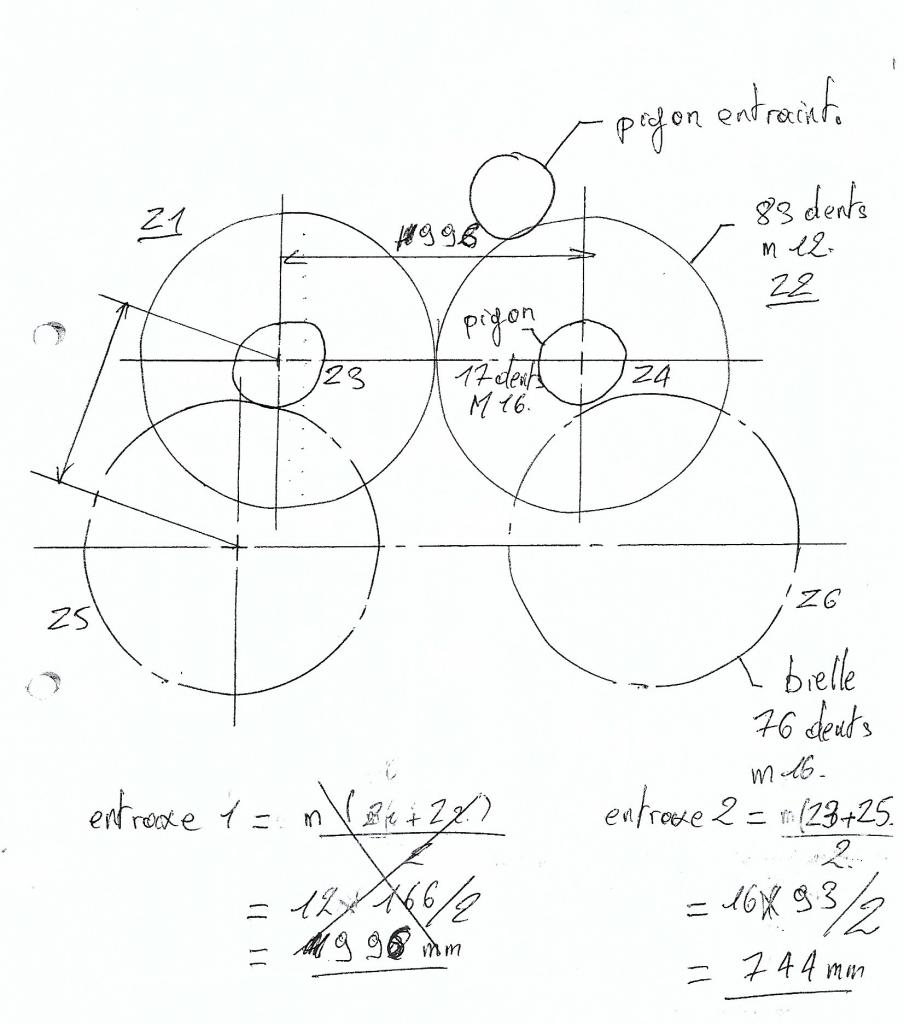 pigon entraint.
Z1
996
83 dents
m 12.
Z2
pigon
17 dents
M 16.
Z3
Z4
Z5
Z6
bielle
76 dents
m 16.
entraxe 1 = m ( + Z2)
2
= 12 x 166/2
= 996 mm
entraxe 2 = m(Z3+Z5
2.
= 16 x 93/2
= 744 mm